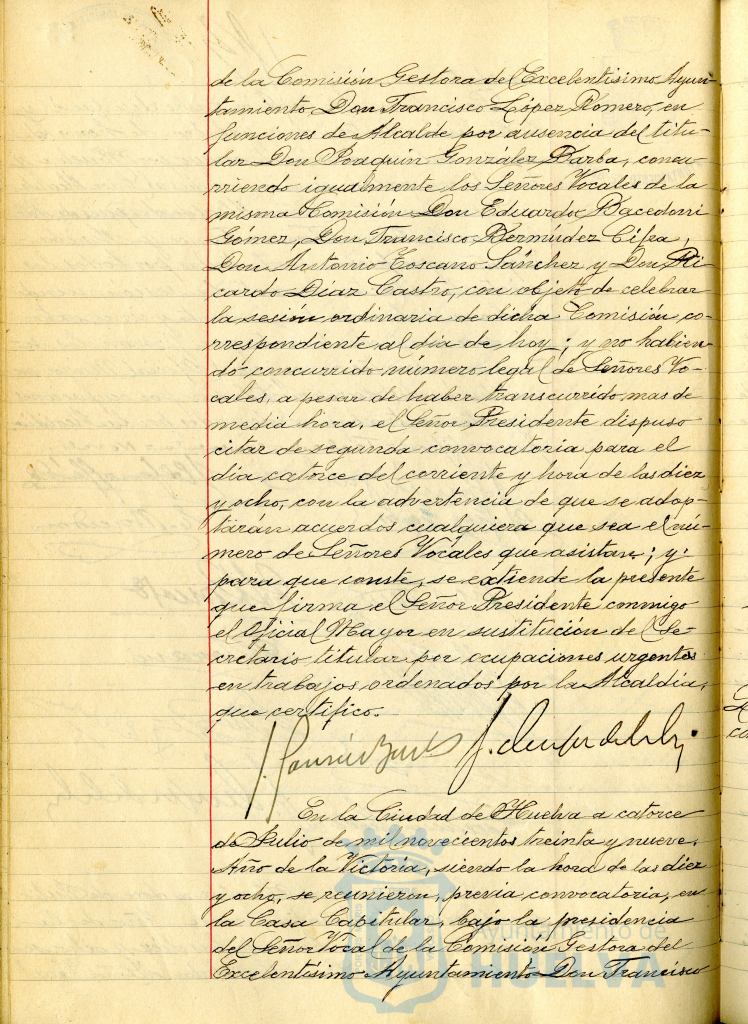 de la Comisión Gestora del Excelentisimo Ayun-
tamiento, Don Francisco López Romero, en
funciones de Alcalde por ausencia del titu-
lar Don Joaquin González Barba, concu-
rriendo igualmente los Señores Vocales de la
misma Comisión Don Eduardo Bacedoni
Gómez, Don Francisco Bermúdez Cifra,
Don Antonio Toscano Sánchez y Don Ri-
cardo Díaz Castro, con objeto de celebrar
la sesión ordinaria de dicha Comisión co-
rrespondiente al dia de hoy; y no habien-
do concurrido número legal de Señores Vo-
cales, a pesar de haber transcurrido mas de
media hora, el Señor Presidente dispuso
citar de segunda convocatoria para el
dia catorce del corriente y hora de las diez
y ocho, con la advertencia de que se adop-
tarán acuerdos cualquiera que sea el nú-
mero de Señores Vocales que asistan; y
para que conste, se extiende la presente
que firma el Señor Presidente conmigo
el Oficial Mayor en sustitución del Se-
cretario titular por ocupaciones urgentes
en trabajos ordenados por la Alcaldia,
que certifico.
En la Ciudad de Huelva a catorce
de Julio de mil novecientos treinta y nueve,
Año de la Victoria, siendo la hora de las diez
y ocho, se reunieron, previa convocatoria, en
la Casa Capitular, bajo la presidencia
del Señor Vocal de la Comisión Gestora del
Excelentísimo Ayuntamiento Don Francisco
Ayuntamiento de
HUELVA